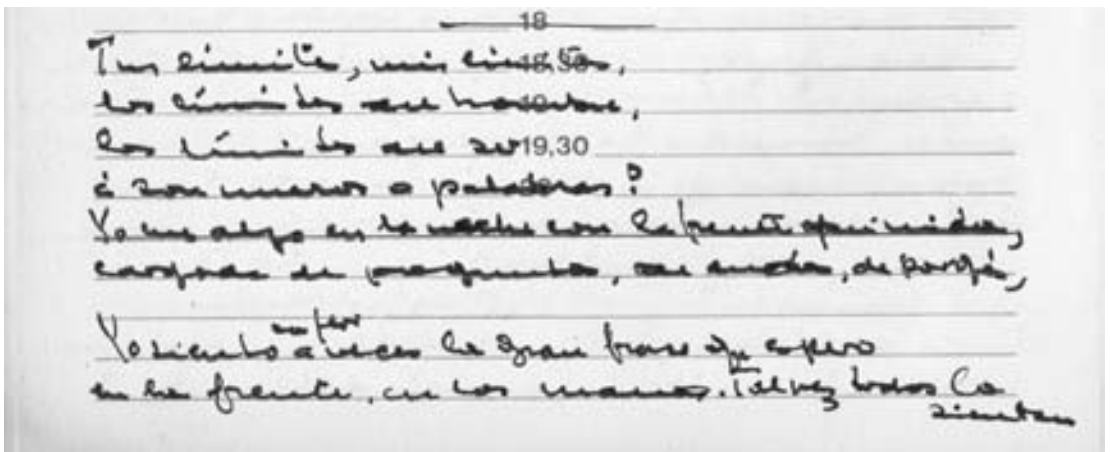 18
Tus límites, mis límites,
los límites del hombre,
los límites del ser
¿son muros o palabras?
Yo me alzo en la noche con la frente oprimida,
cargada de preguntas, de dudas, de porqués,
Yo siento a veces la gran frase que espero
en la frente, en las manos. Tal vez todos la
sientan
19,30